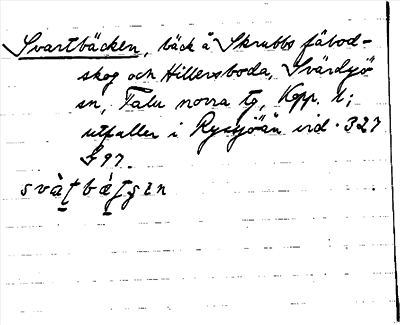 Svartbäcken, bäck å Skrubbs fäbod-
skog och Hillersboda, Svärdsjö
sn, Falu norra tg, Kopp. l;
utfaller i Rysjöån vid · 327
§ 97.